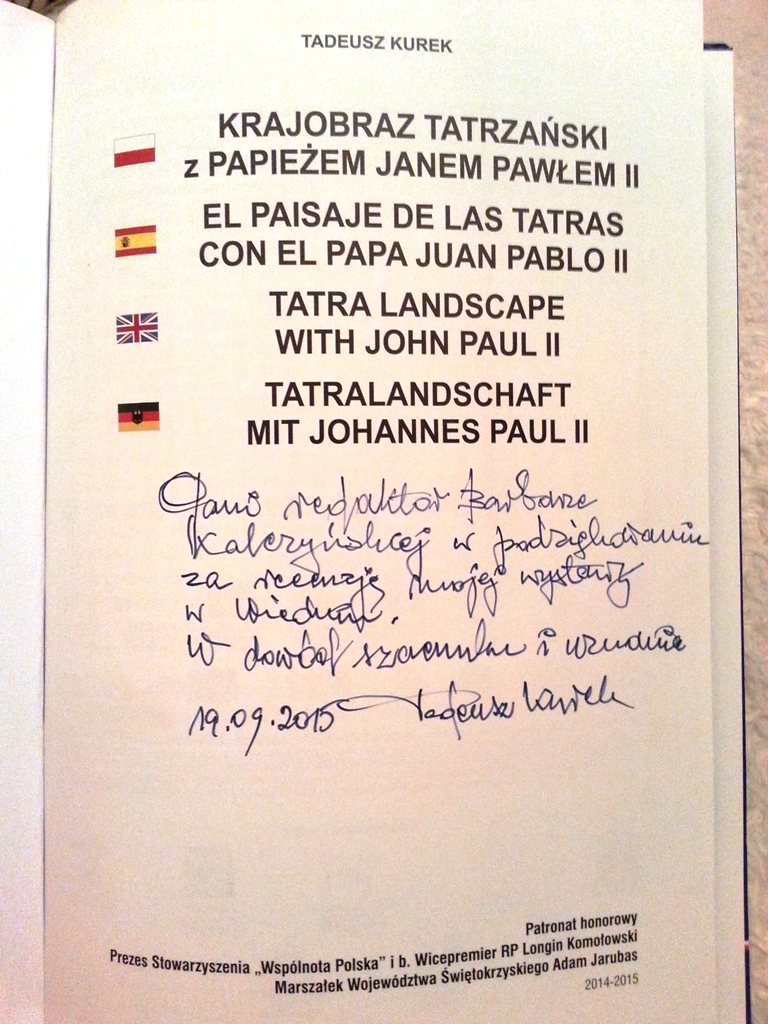 TADEUSZ KUREK
KRAJOBRAZ TATRZAŃSKI
z PAPIEŻEM JANEM PAWŁEM II
EL PAISAJE DE LAS TATRAS
CON EL PAPA JUAN PABLO II
TATRA LANDSCAPE
WITH JOHN PAUL II
TATRALANDSCHAFT
MIT JOHANNES PAUL II
Pani redaktor Barbarze
w podziękowaniu
za recenzję mojej wystawy
w Wiedniu.
W dowód szacunku i
19.09.2015 Tadeusz Kurek
Patronat honorowy
Prezes Stowarzyszenia „Wspólnota Polska” i b. Wicepremier RP Longin Komołowski
Marszałek Województwa Świętokrzyskiego Adam Jarubas
2014-2015